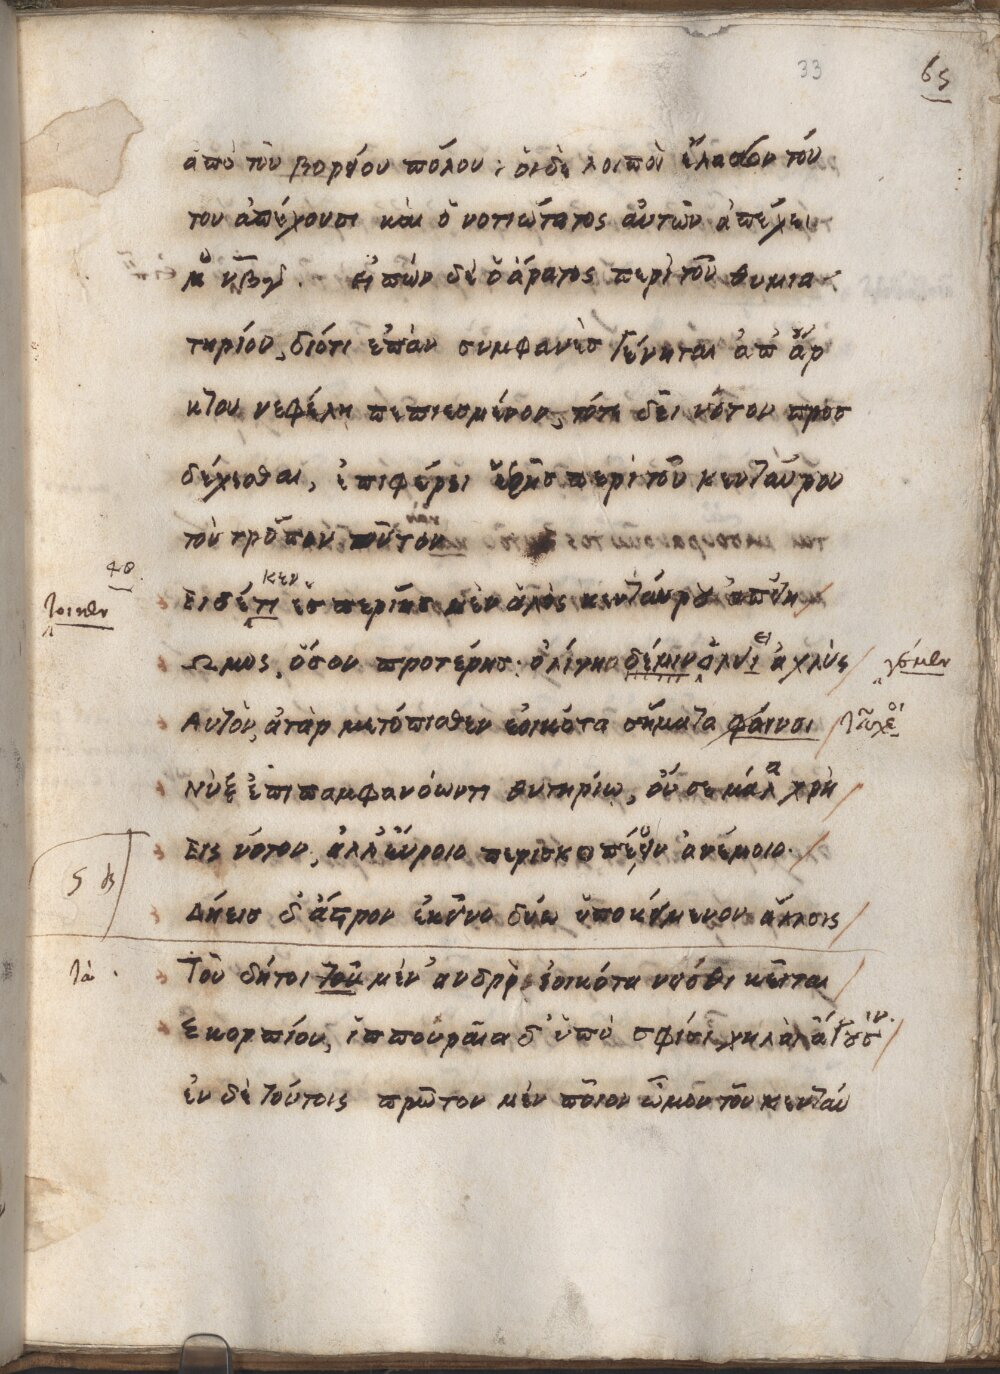 33
65
ἀπὸ τοῦ βορείου πόλου· ὁι δὲ λοιποὶ ἔλασσον τού
του ἀπέχουσι καὶ ὁ νοτιώτατος ἀυτῶν ἀπέχει
Ειπὼν δὲ ὁ άρατος περὶ τοῦ θυμια
τηρίου, διότι επὰν συμφανὲσ γένηται ἀπ ἄρ
κτου νεφέλη πεπιεσμένον, τότε δεῖ νότον προσ
δέχεσθαι, ἐπιφέρει ἑξῆσ περὶ τοῦ κενταύρου
τὸν τρόπον τοῦτον
κεν
Ει δέ τι ἑσπερίησ μὲν ἁλὸς κενταύρου
Ωμος, ὅσον προτέρησ· ὀλίγη δέ μιν ἀχλὺς
Αυτὸν, ἀτὰρ μετόπισθεν ἐοικότα σήματα φαίνοι
Νὺξ ἐπι παμφανόωντι θυτηρίω, ὄυ σε μάλα χρὴ
Εις νότον, ἀλλ ἐύροιο περισκοπέειν ἀνέμοιο.
Δήεισ δ ἄστρον ἐκεῖνο δύω ὑποκείμενον ἄλλοις
τὰ
Τοῦ δήτοι τοῦ μὲν ἀνδρὶ ἐοικότα νειόθι κεῖται
Σκορπίου, ἱππουραῖα δ ὑπὸ σφίσι χηλαὶ ἄγουσιν.
ἐν δὲ τούτοις πρῶτον μὲν ποῖον ὦμον τοῦ κενταύ